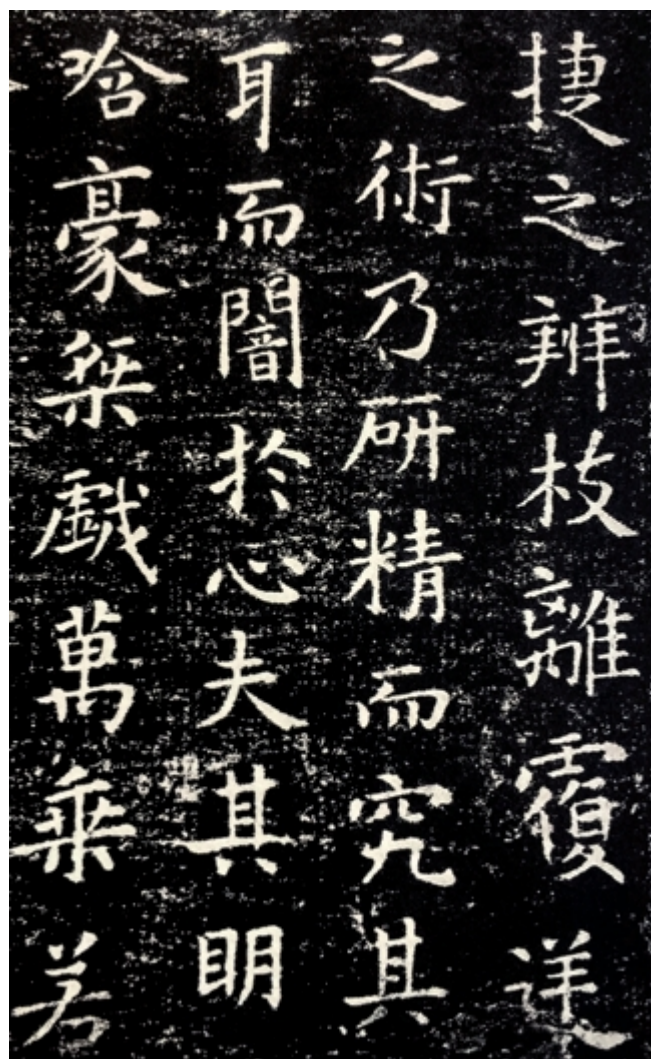 捷之辨枝離覆逆
之術乃研精而究其
耳而闇於心夫其明
哈豪桀戲萬乗若